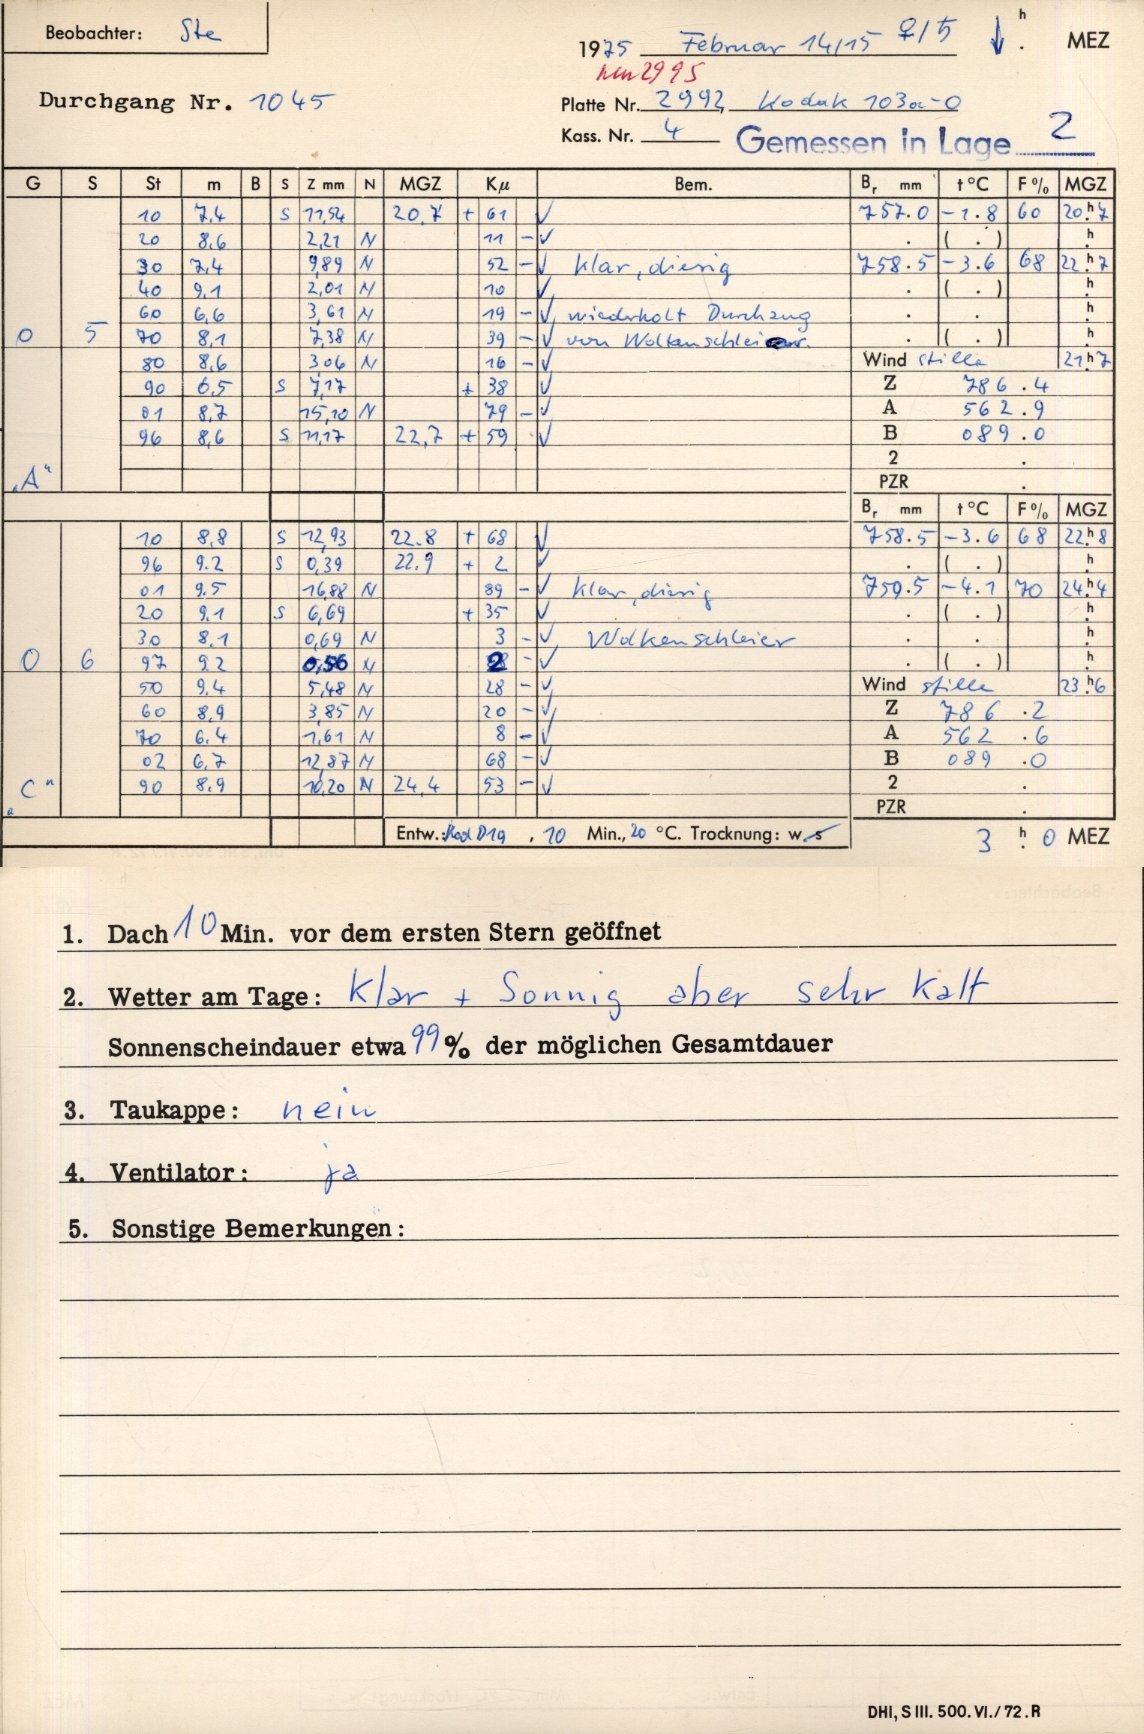 Beobachter: Ste
1975 Februar 14/15 ♀/♄ ↓ h . MEZ
neu 2995
Durchgang Nr. 1045
Platte Nr. 2992, Kodak 103a-O
Kass. Nr. 4 Gemessen in Lage 2
G S St m B S Z mm N MGZ Kμ Bem. Br mm t °C F % MGZ
10 7,4 S 11,54 20,7 + 61 √ 757.0 -1.8 60 20.h7
20 8,6 2,21 N 11 - √ . ( . ) h.
30 7,4 9,89 N 52 - √ klar, diesig 758.5 -3.6 68 22.h7
40 9,1 2,01 N 10 √ . ( . ) h.
60 6,6 3,61 N 19 - √ wiederholt Durchzug . . h.
0 5 70 8,1 7,38 N 39 - √ von Wolkenschleier. . ( . ) h.
80 8,6 3,06 N 16 - √ Wind stille 21.h7
90 6,5 S 7,17 + 38 √ Z 786.4
01 8,7 15,10 N 79 - √ A 562.9
96 8,6 S 11,17 22,7 + 59 √ B 089.0
2 .
„A“ PZR .
Br mm t °C F % MGZ
10 8,8 S 12,93 22.8 + 68 √ 758.5 -3.6 68 22.h8
96 9.2 S 0,39 22,9 + 2 √ . ( . ) h.
01 9.5 16,88 N 89 - √ klar, diesig 759.5 -4.1 70 24.h4
20 9,1 S 6,69 + 35 √ . ( . ) h.
30 8.1 0,69 N 3 - √ Wolkenschleier . . h.
0 6 97 9.2 0,56 N 2 - √ . ( . ) h.
50 9.4 5,48 N 28 - √ Wind stille 23.h6
60 8,9 3,85 N 20 - √ Z 786.2
70 6.4 1,61 N 8 - √ A 562.6
02 6,7 12,87 N 68 - √ B 089.0
„C“ 90 8.9 10,20 N 24,4 53 - √ 2 .
PZR .
Entw.: Kod D19, 10 Min., 20 °C. Trocknung: w. s 3 h. 0 MEZ
1. Dach 10 Min. vor dem ersten Stern geöffnet
2. Wetter am Tage: Klar + Sonnig aber sehr kalt
Sonnenscheindauer etwa 99 % der möglichen Gesamtdauer
3. Taukappe: nein
4. Ventilator: ja
5. Sonstige Bemerkungen:
DHI, S III. 500. VI./72. R